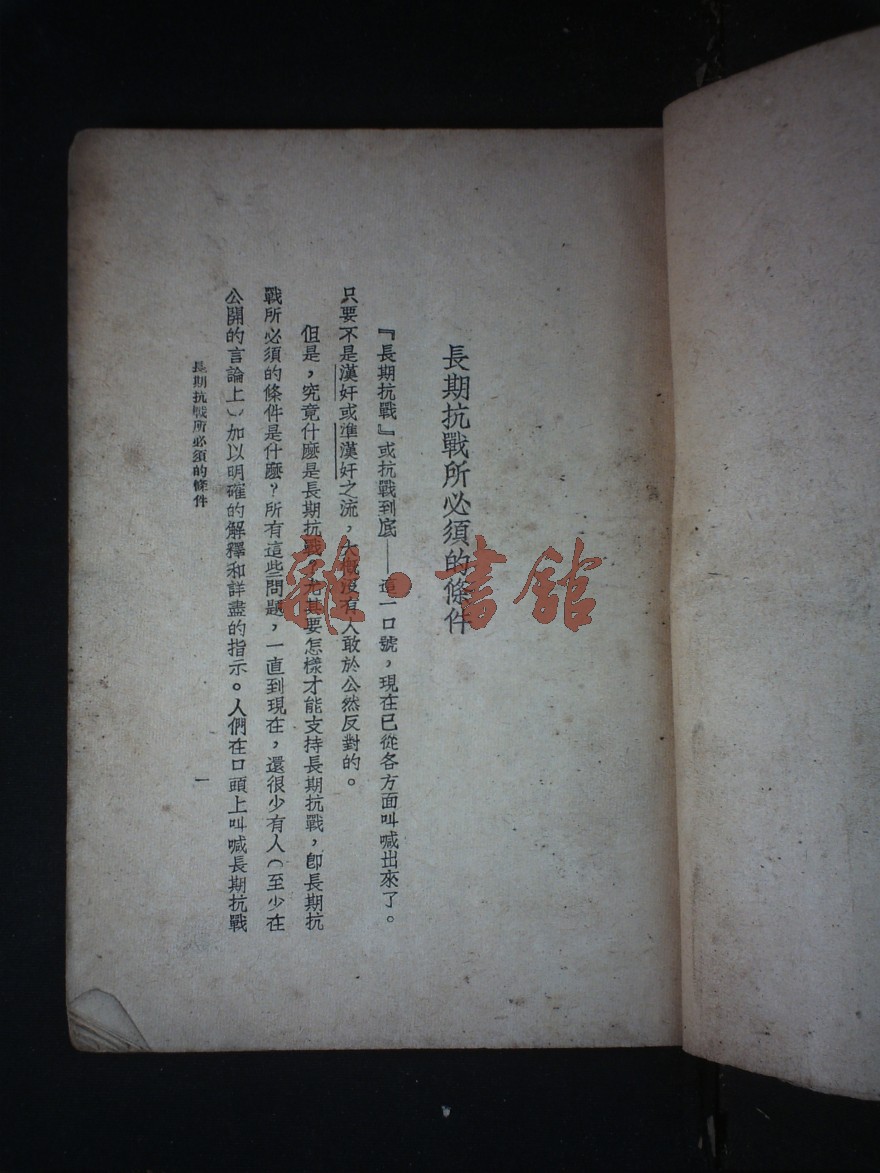 長期抗戰所必須的條件
『長期抗戰』或抗戰到底——這一口號,現在已從各方面叫喊出來了。
只要不是漢奸或準漢奸之流,大概沒有人敢於公然反對的。
但是,究竟什麼是長期抗戰,尤其要怎樣才能支持長期抗戰,卽長期抗
戰所必須的條件是什麼?所有這些問題,一直到現在,還很少有人(至少在
公開的言論上)加以明確的解釋和詳盡的指示。人們在口頭上叫喊長期抗戰
長期抗戰所必須的條件
一
雜·書館